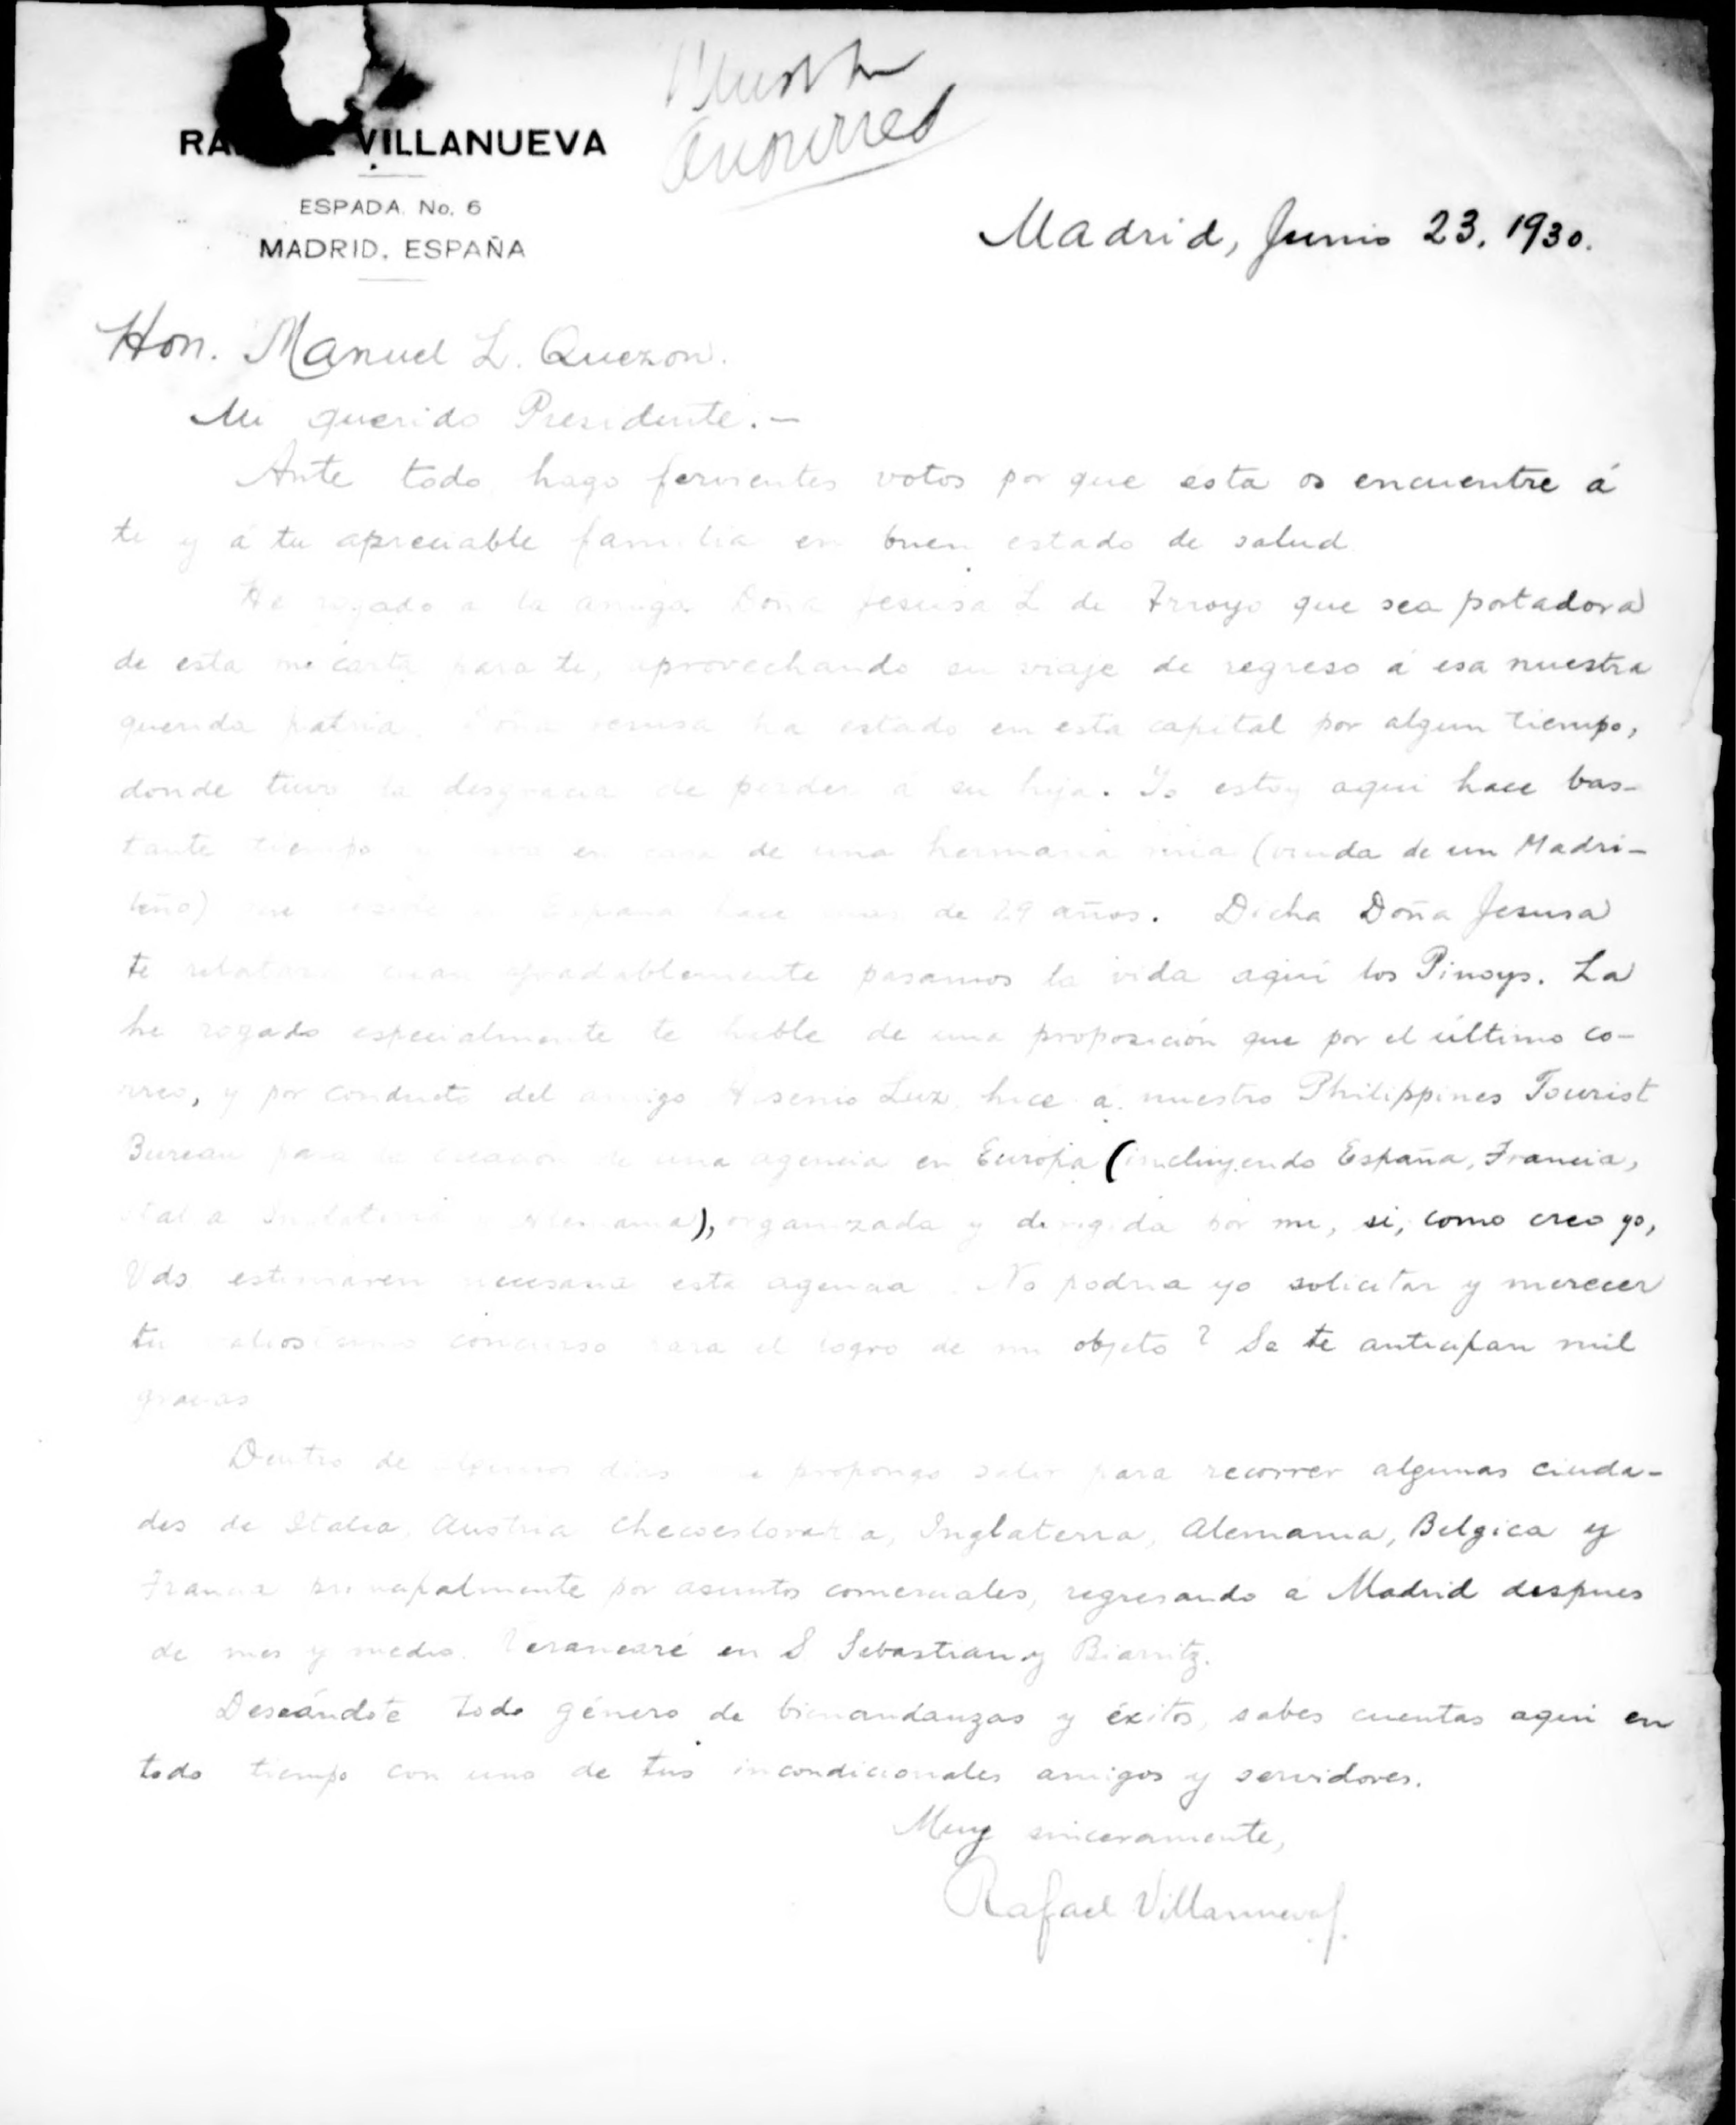 VILLANUEVA
ESPADA. No. 6
MADRID, ESPAÑA
Madrid, Junio 23, 1930.
Hon. Manuel L. Quezon.
Mi querido Presidente.—
Ante todo, hago fervientes votos por que ésta os encuentre á
ti y á tu apreciable familia en buen estado de salud.
He rogado a la amiga Doña Jesusa L. de Arroyo que sea portadora
de esta mi carta para ti, aprovechando su viaje de regreso á esa nuestra
querida patria. Doña Jesusa ha estado en esta capital por algun tiempo,
donde tuvo la desgracia de perder á su hija. Yo estoy aqui hace bas-
tante tiempo y en casa de una hermana mia (viuda de un Madri-
leño) que reside en España hace mas de 29 años. Dicha Doña Jesusa
te relatará cuan agradablemente pasamos la vida aqui los Pinoys. La
he rogado especialmente te hable de una proposición que por el último co-
rreo, y por conducto del amigo Arsenio Luz, hice á nuestro Philippines Tourist
Bureau para la creacion de una agencia en Europa (incluyendo España, Francia,
Italia Inglaterra y Alemania), organizada y dirigida por mi, si, como creo yo,
Vds. estimaren necesaria esta agencia. No podria yo solicitar y merecer
tu valiosisimo concurso para el logro de mi objeto? Se te anticipan mil
gracias.
Dentro de algunos dias me propongo salir para recorrer algunas ciuda-
des de Italia, Austria Checoeslovakia, Inglaterra, Alemania, Belgica y
Francia principalmente por asuntos comerciales, regresando á Madrid despues
de mes y medio. Veranearé en S. Sebastian y Biarritz.
Deseándote todo género de bienandanzas y éxitos, sabes cuentas aqui en
todo tiempo con uno de tus incondicionales amigos y servidores.
Muy sinceramente,
Rafael Villanueva